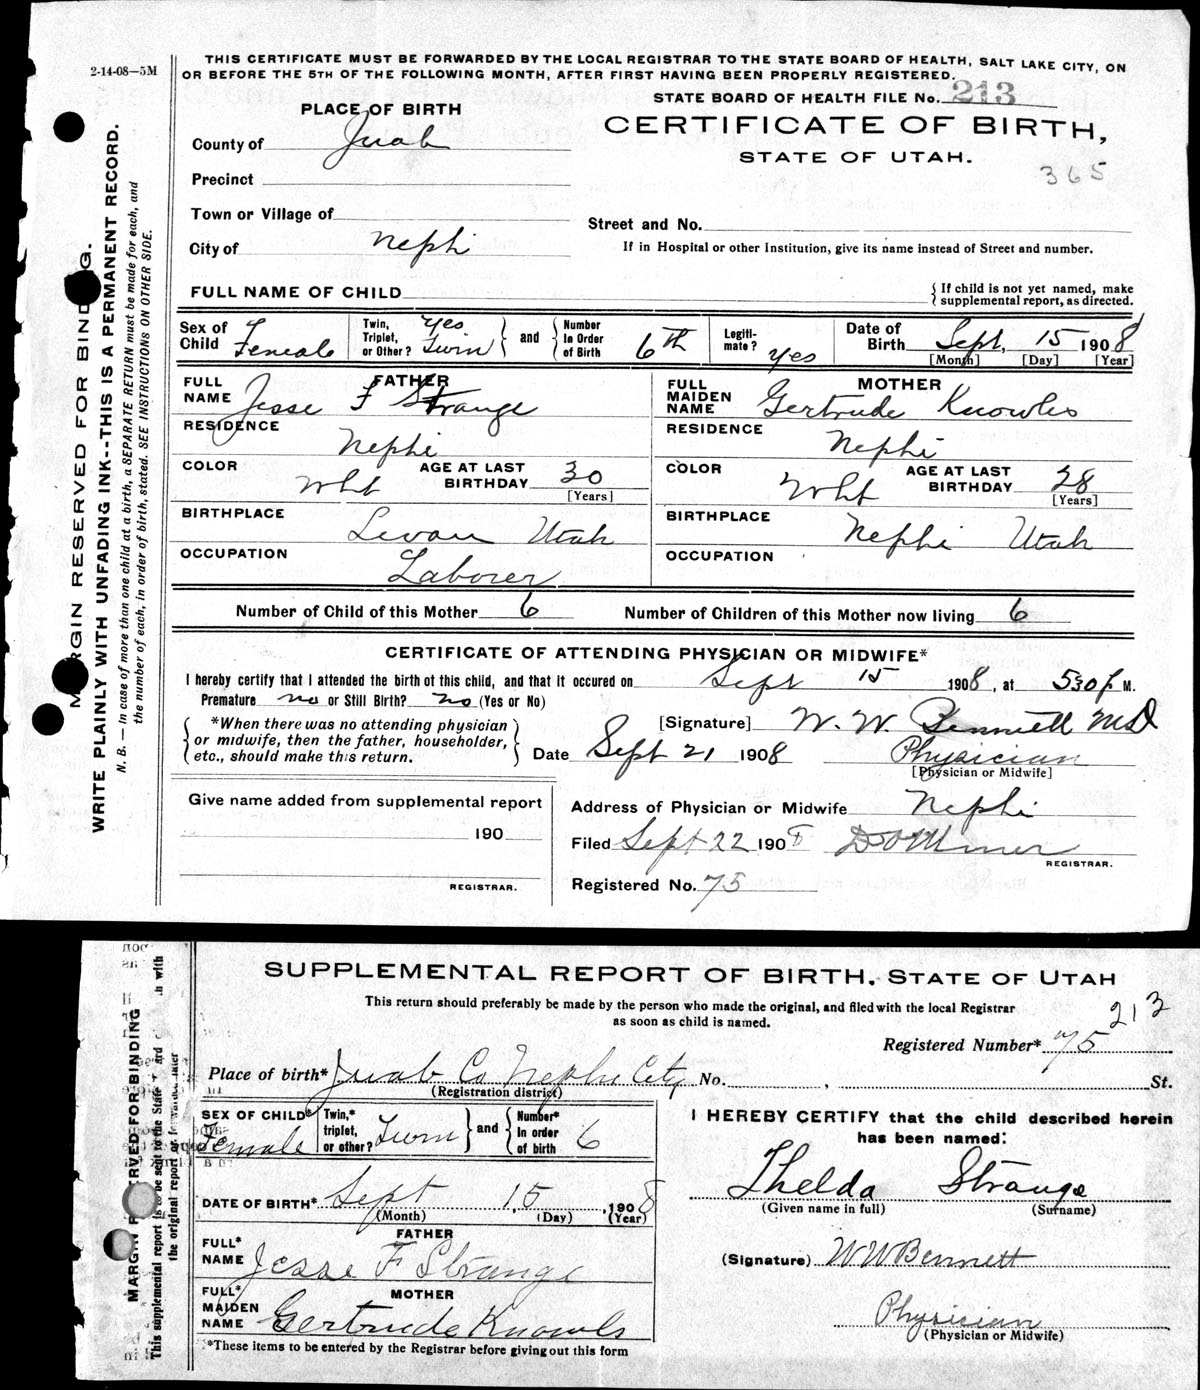 2-14-08—5M
THIS CERTIFICATE MUST BE FORWARDED BY THE LOCAL REGISTRAR TO THE STATE BOARD OF HEALTH, SALT LAKE CITY, ON
OR BEFORE THE 5TH OF THE FOLLOWING MONTH, AFTER FIRST HAVING BEEN PROPERLY REGISTERED.
STATE BOARD OF HEALTH FILE No. 213
PLACE OF BIRTH
CERTIFICATE OF BIRTH,
STATE OF UTAH.
365
County of Juab
Precinct
Town or Village of
Street and No.
City of Nephi
If in Hospital or other Institution, give its name instead of Street and number.
FULL NAME OF CHILD
{If child is not yet named, make
supplemental report, as directed.
Sex of Child Female
Twin, Triplet, or Other? Yes Twin } and { Number In Order of Birth 6th
Legiti-mate? Yes
Date of Birth Sept, 15 1908
[Month] [Day] [Year]
FATHER
FULL NAME Jesse F Strange
RESIDENCE Nephi
COLOR Wht AGE AT LAST BIRTHDAY 30
[Years]
BIRTHPLACE Levan Utah
OCCUPATION Laborer
MOTHER
FULL MAIDEN NAME Gertrude Knowles
RESIDENCE Nephi
COLOR Wht AGE AT LAST BIRTHDAY 28
[Years]
BIRTHPLACE Nephi Utah
OCCUPATION
Number of Child of this Mother 6 Number of Children of this Mother now living 6
CERTIFICATE OF ATTENDING PHYSICIAN OR MIDWIFE*
I hereby certify that I attended the birth of this child, and that it occured on Sept 15 1908, at 530 P. M.
Premature no or Still Birth? no (Yes or No)
{ *When there was no attending physician
or midwife, then the father, householder,
etc., should make this return. }
[Signature] W. W. Bennett MD
Date Sept 21 1908 Physician
[Physician or Midwife]
Give name added from supplemental report
190
REGISTRAR.
Address of Physician or Midwife Nephi
Filed Sept 22 1908 Miner
REGISTRAR.
Registered No. 75
MARGIN RESERVED FOR BINDING.
WRITE PLAINLY WITH UNFADING INK--THIS IS A PERMANENT RECORD.
N. B. — In case of more than one child at a birth, a SEPARATE RETURN must be made for each, and
the number of each, in order of birth, stated. SEE INSTRUCTIONS ON OTHER SIDE.
SUPPLEMENTAL REPORT OF BIRTH, STATE OF UTAH
This return should preferably be made by the person who made the original, and filed with the local Registrar
as soon as child is named.
213
Registered Number* 75
Place of birth* Juab Co Nephi City No. , St.
(Registration district)
SEX OF CHILD* Female
Twin,* triplet, or other? Twin } and { Number* In order of birth 6
DATE OF BIRTH* Sept 15 , 1908
(Month) (Day) (Year)
FATHER
FULL* NAME Jesse F Strange
MOTHER
FULL* MAIDEN NAME Gertrude Knowls
*These items to be entered by the Registrar before giving out this form
I HEREBY CERTIFY that the child described herein
has been named:
Thelda Strange
(Given name in full) (Surname)
(Signature) W W Bennett
Physician
(Physician or Midwife)
MARGIN RESERVED FOR BINDING
This supplemental report is to be sent to the State
the original report